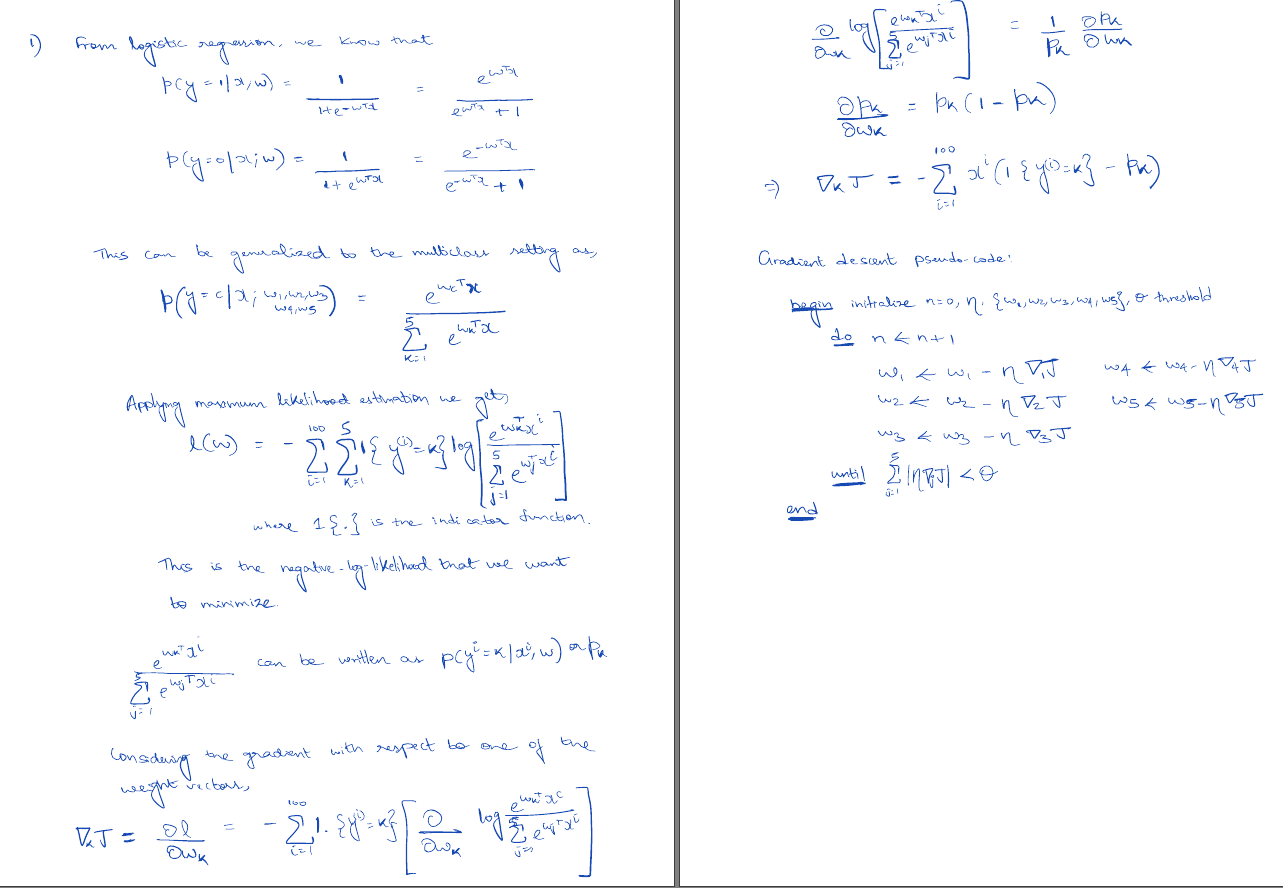 1) From logistic regression, we know that
p(y=1|x,w) = 1/(1+e^{-wᵀx}) = e^{wᵀx}/(e^{wᵀx} + 1)
p(y=0|x;w) = 1/(1+e^{wᵀx}) = e^{-wᵀx}/(e^{-wᵀx} + 1)
This can be generalized to the multiclass setting as,
p(y=c|x; w1,w2,w3 w4,w5) = e^{wcᵀx} / ∑_{k=1}^{5} e^{wkᵀx}
Applying maximum likelihood estimation we get,
l(w) = - ∑_{i=1}^{100} ∑_{k=1}^{5} 1{y^{(i)}=k} log[e^{wkᵀx^i} / ∑_{j=1}^{5} e^{wjᵀx^i}]
where 1{.} is the indicator function.
This is the negative-log-likelihood that we want
to minimize.
e^{wkᵀx^i} / ∑_{j=1}^{5} e^{wjᵀx^i} can be written as p(y^i=k|x^i,w) or pk
Considering the gradient with respect to one of the
weight vectors,
∇kJ = ∂l/∂wk = - ∑_{i=1}^{100} 1.{y^{(i)}=k} [∂/∂wk log e^{wkᵀx^i} / ∑_{j=1}^{5} e^{wjᵀx^i}]
∂/∂wk log[e^{wkᵀx^i} / ∑_{j=1}^{5} e^{wjᵀx^i}] = 1/pk ∂pk/∂wk
∂pk/∂wk = pk(1-pk)
⇒ ∇kJ = - ∑_{i=1}^{100} x^i(1{y^{(i)}=k} - pk)
Gradient descent pseudo-code:
begin initialize n=0, η, {w1,w2,w3,w4,w5}, θ threshold
do n ← n+1
w1 ← w1 - η∇1J w4 ← w4-η∇4J
w2 ← w2 - η∇2J w5 ← w5-η∇5J
w3 ← w3 - η∇3J
until ∑_{j=1}^{5} |η∇jJ| < θ
end